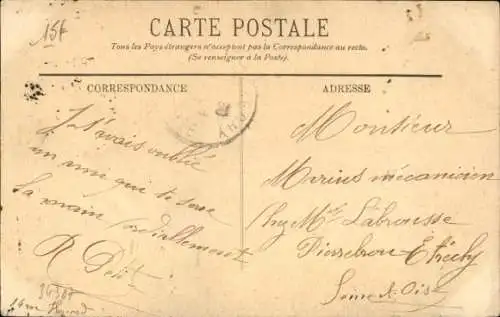 15f
CARTE POSTALE
Tous les Pays étrangers n'acceptent pas la Correspondance au recto.
(Se renseigner à la Poste).
CORRESPONDANCE
J't'avais oublié
un ami qui te serre
la main cordiallement
R Petit
ADRESSE
Monsieur
Marius mécanicien
Chez Mr Labrousse
Pierrebrou Etréchy
Seine et Oise